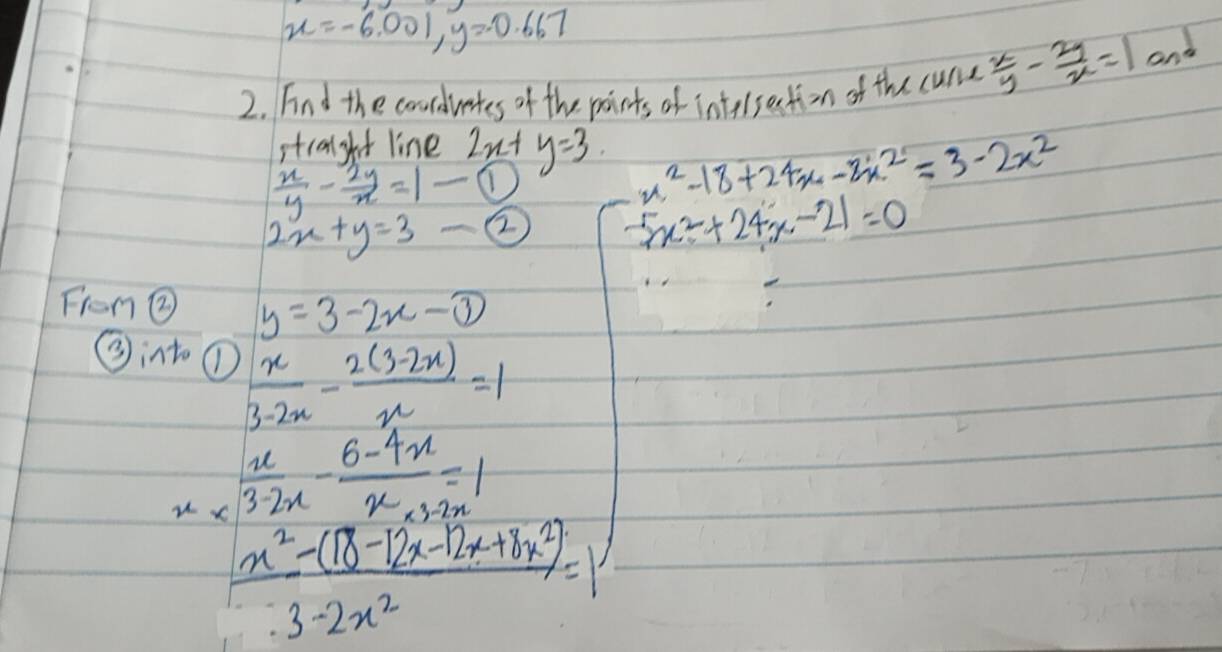 x=-6.001, y=-0.667
2. Find the coordinates of the points of intersection of the curve x/y - 2y/x = 1 and
straight line 2x + y = 3.
x/y - 2y/x = 1 — ①
2x + y = 3 — ②
From ② y = 3 - 2x — ③
③ into ① x/(3-2x) - 2(3-2x)/x = 1
x × x/(3-2x) - (6-4x)/x ×3-2x = 1
(x² - (18 - 12x - 12x + 8x²))/(3 - 2x²) = 1
x² - 18 + 24x - 8x² = 3 - 2x²
-5x² + 24x - 21 = 0